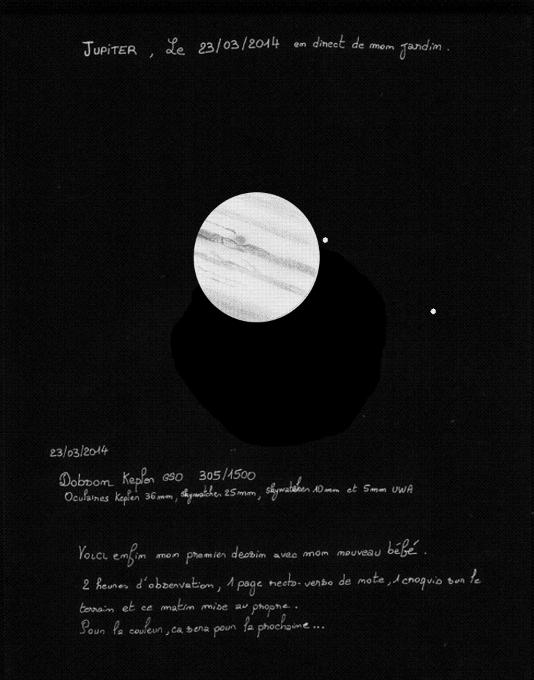 JUPITER , Le 23/03/2014 en direct de mon jardin .
23/03/2014
Dobson Kepler GSO 305/1500
Oculaires Kepler 36mm, skywatcher 25mm, skywatcher 10mm et 5mm UWA
Voici enfin mon premier dessin avec mon nouveau bébé .
2 heures d'observation, 1 page recto-verso de note, 1 croquis sur le
terrain et ce matin mise au propre .
Pour la couleur, ca sera pour la prochaine ...